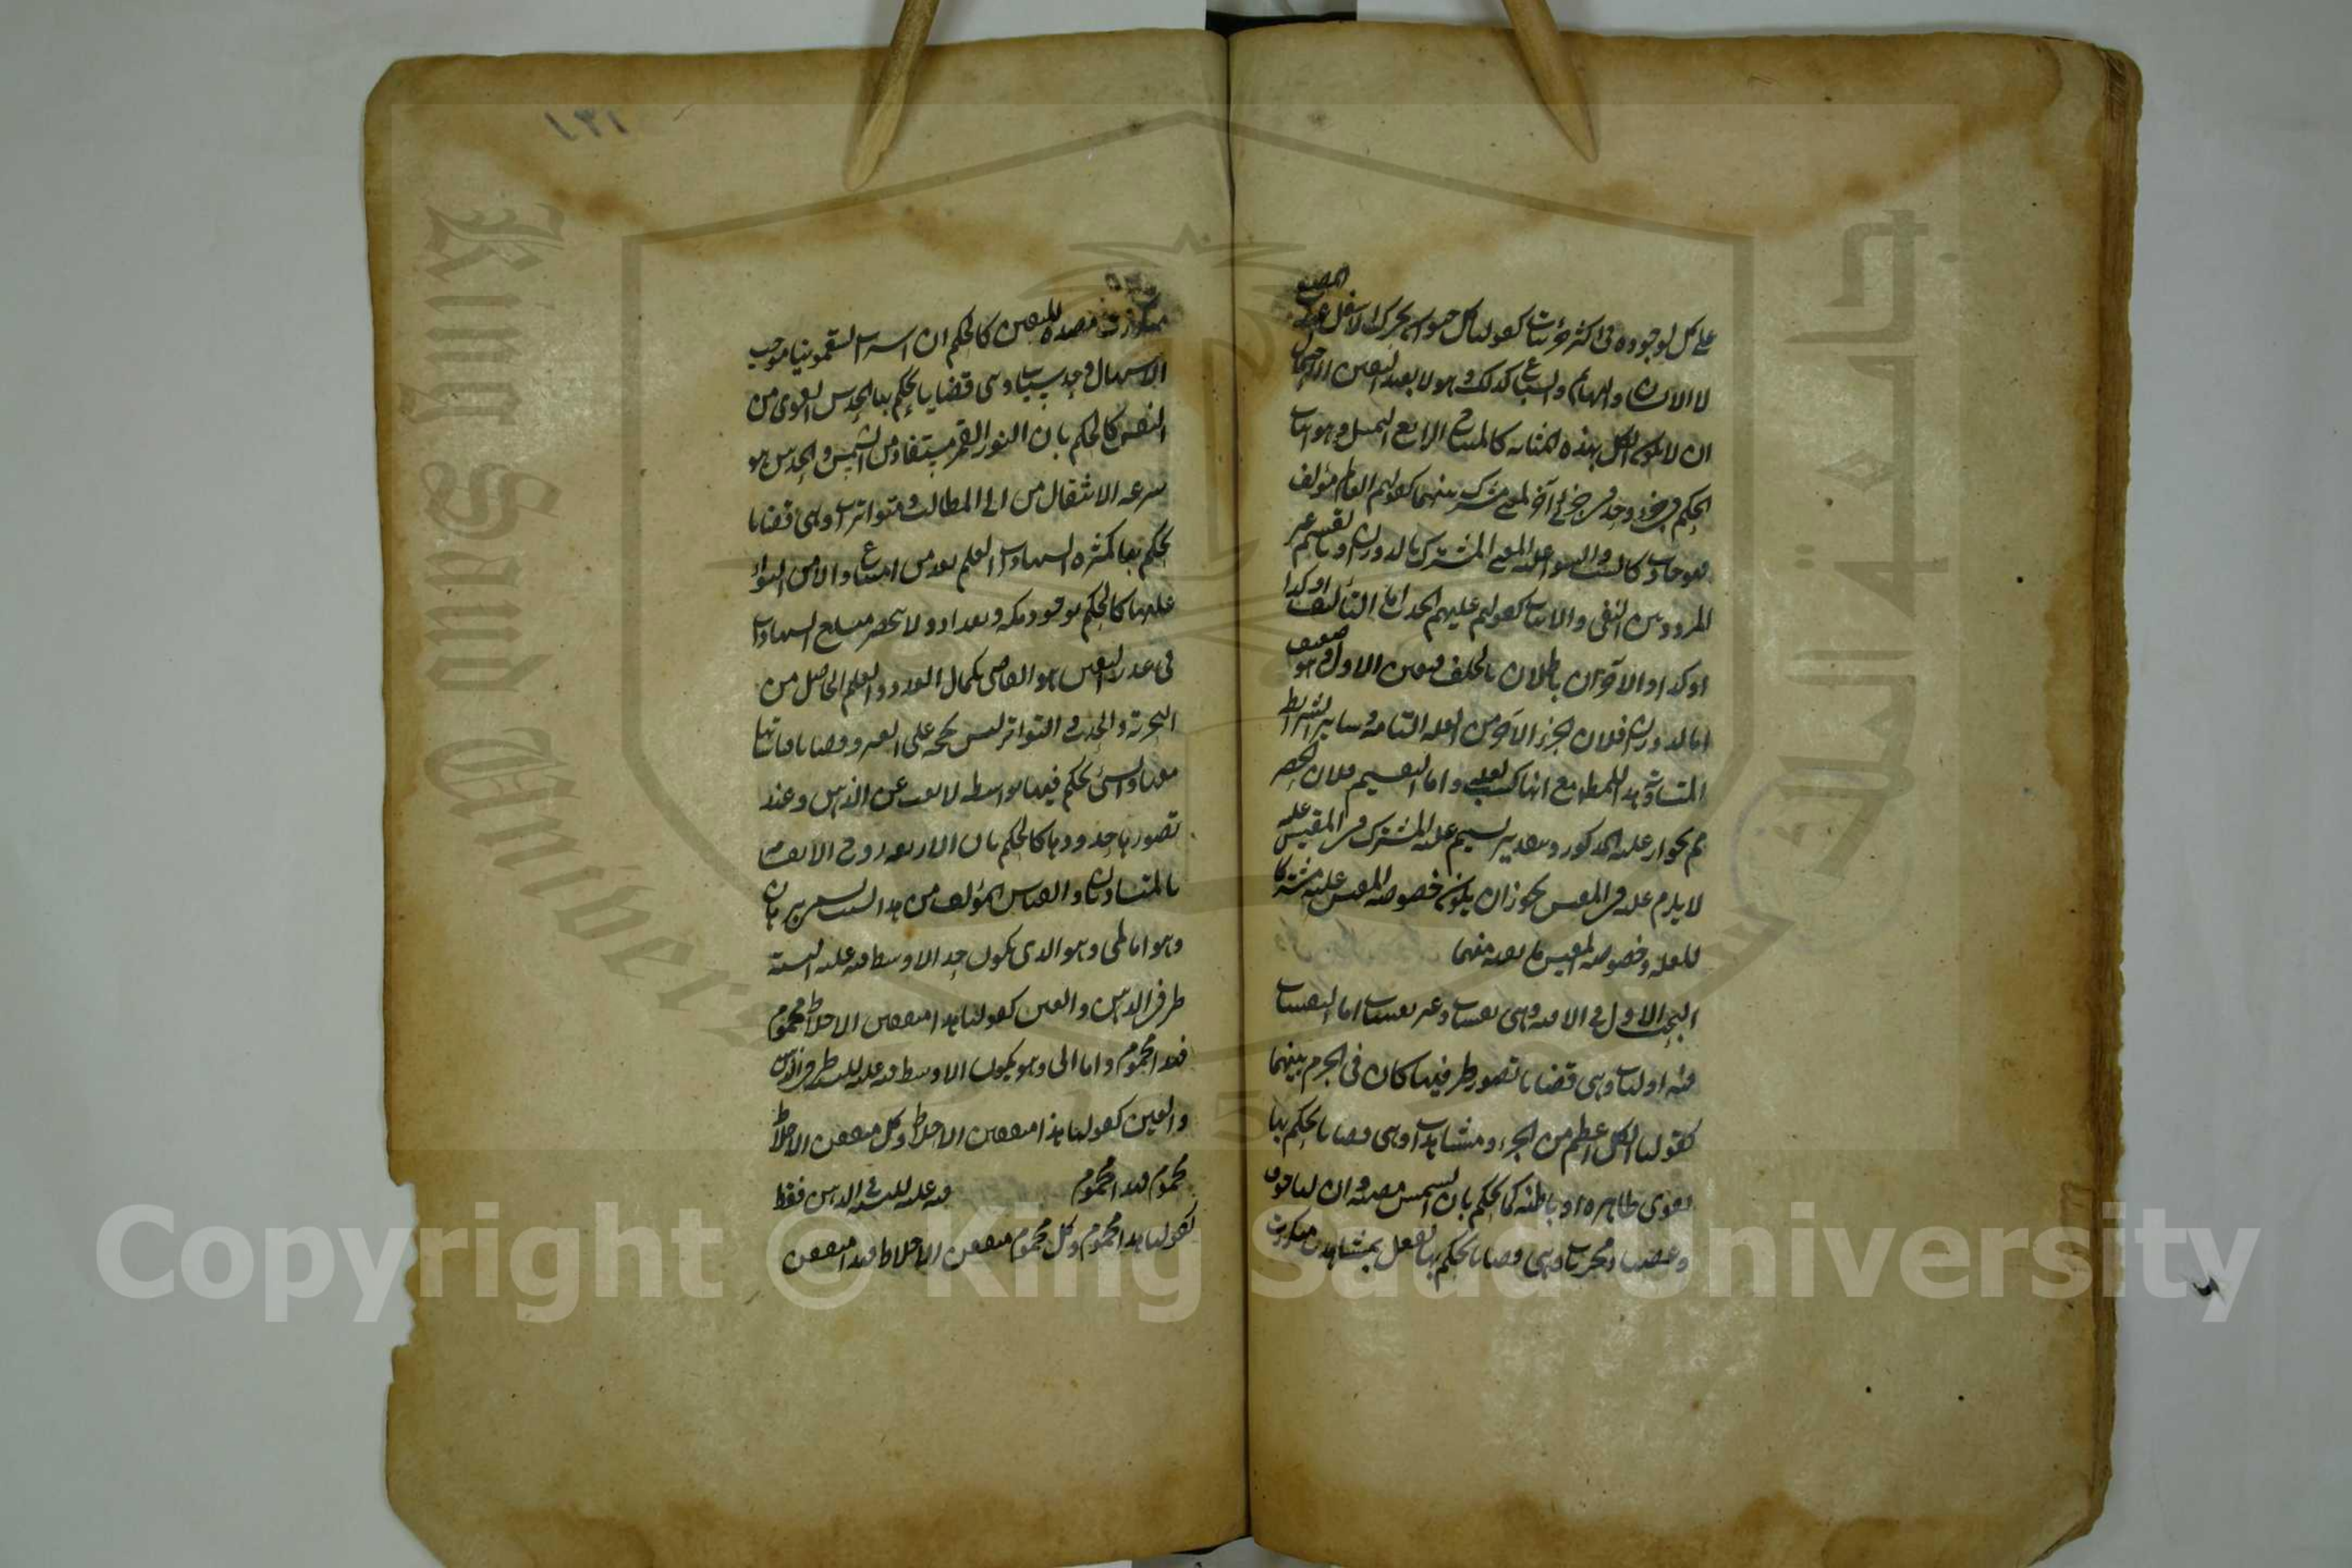 على كل لوجوده فى اكثر جزئياته كقولنا كل حيوان يحرك فكه الاسفل عند المضغ
لان الانسان والبهائم والسباع كذلك وهو لا يفيد اليقين لاحتمال
ان لا يكون الكل بهذه المثابة كالتمساح الرابع التمثيل وهو اثبات
الحكم فى جزئى وجد فى جزئى آخر لمعنى مشترك بينهما كقولهم العالم مؤلف
فهو حادث كالبيت واثبتوا علية المعنى المشترك بالدوران وبالتقسيم غير
المردد بين النفى والاثبات كقولهم علة الحدوث اما التأليف او كذا
او كذا والاخيران باطلان بالتخلف فتعين الاول وهو ضعيف
اما الدوران فلان الجزء الاخير من العلة التامة وسائر الشرائط
المتساوية مدار للمعلول مع انها ليست بعلة واما التقسيم فلان الحصر
ثم بجواز علية المذكور وبتقدير تسليم علية المشترك فى المقيس عليه
لا يلزم عليته فى المقيس لجواز ان يكون خصوصية المقيس عليه شرطا
للعلية وخصوصية المقيس مانعة منها
البحث الاول فى الاقيسة وهى يقينيات وغير يقينيات اما اليقينيات
فمنه اوليات وهى قضايا تصور طرفيها كاف فى الجزم بينهما
كقولنا الكل اعظم من الجزء ومشاهدات وهى قضايا يحكم بها
بقوى ظاهرة او باطنة كالحكم بان الشمس مضيئة وان لنا خوفا
وغضبا ومجربات وهى قضايا يحكم بها العقل بمشاهدات متكررة
مفيدة لليقين كالحكم ان شرب السقمونيا موجب
الاسهال وحدسيات وهى قضايا يحكم بها لحدس القوى من
النفس كالحكم بان النور القمر مستفاد من الشمس والحدس هو
سرعة الانتقال من الى المطالب ومتواترات وهى قضايا
يحكم بها لكثرة الشهادات العلم بعدم امتناع والامن التواطؤ
عليها كالحكم بوجود مكة وبغداد ولا ينحصر مبلغ الشهادات
فى عدد بل اليقين هو القاضى بكمال العدد والعلم الحاصل من
التجربة والحدس والتواتر ليس بحجة على الغير وقضايا قياساتها
معها وهى التى يحكم فيها بواسطة لا تغيب عن الذهن عند
تصور حدودها كالحكم بان الاربعة زوج لانقسامها
بالمتساويين والقياس المؤلف من هذه الست يسمى برهان
وهو اما لمى وهو الذى يكون حد الاوسط فيه علة للنسبة
طرفى الذهن والعين كقولنا هذا متعفن الاخلاط محموم
فهذا محموم واما انى وهو يكون الاوسط فيه علة للنسبة طرفى الذهن
والعين كقولنا هذا متعفن الاخلاط وكل متعفن الاخلاط
محموم فهذا محموم فيه علة للنسبة فى الذهن فقط
كقولنا هذا محموم وكل محموم متعفن الاخلاط فهذا متعفن
١٣١
جامعة الملك سعود
King Saud University
Copyright © King Saud University